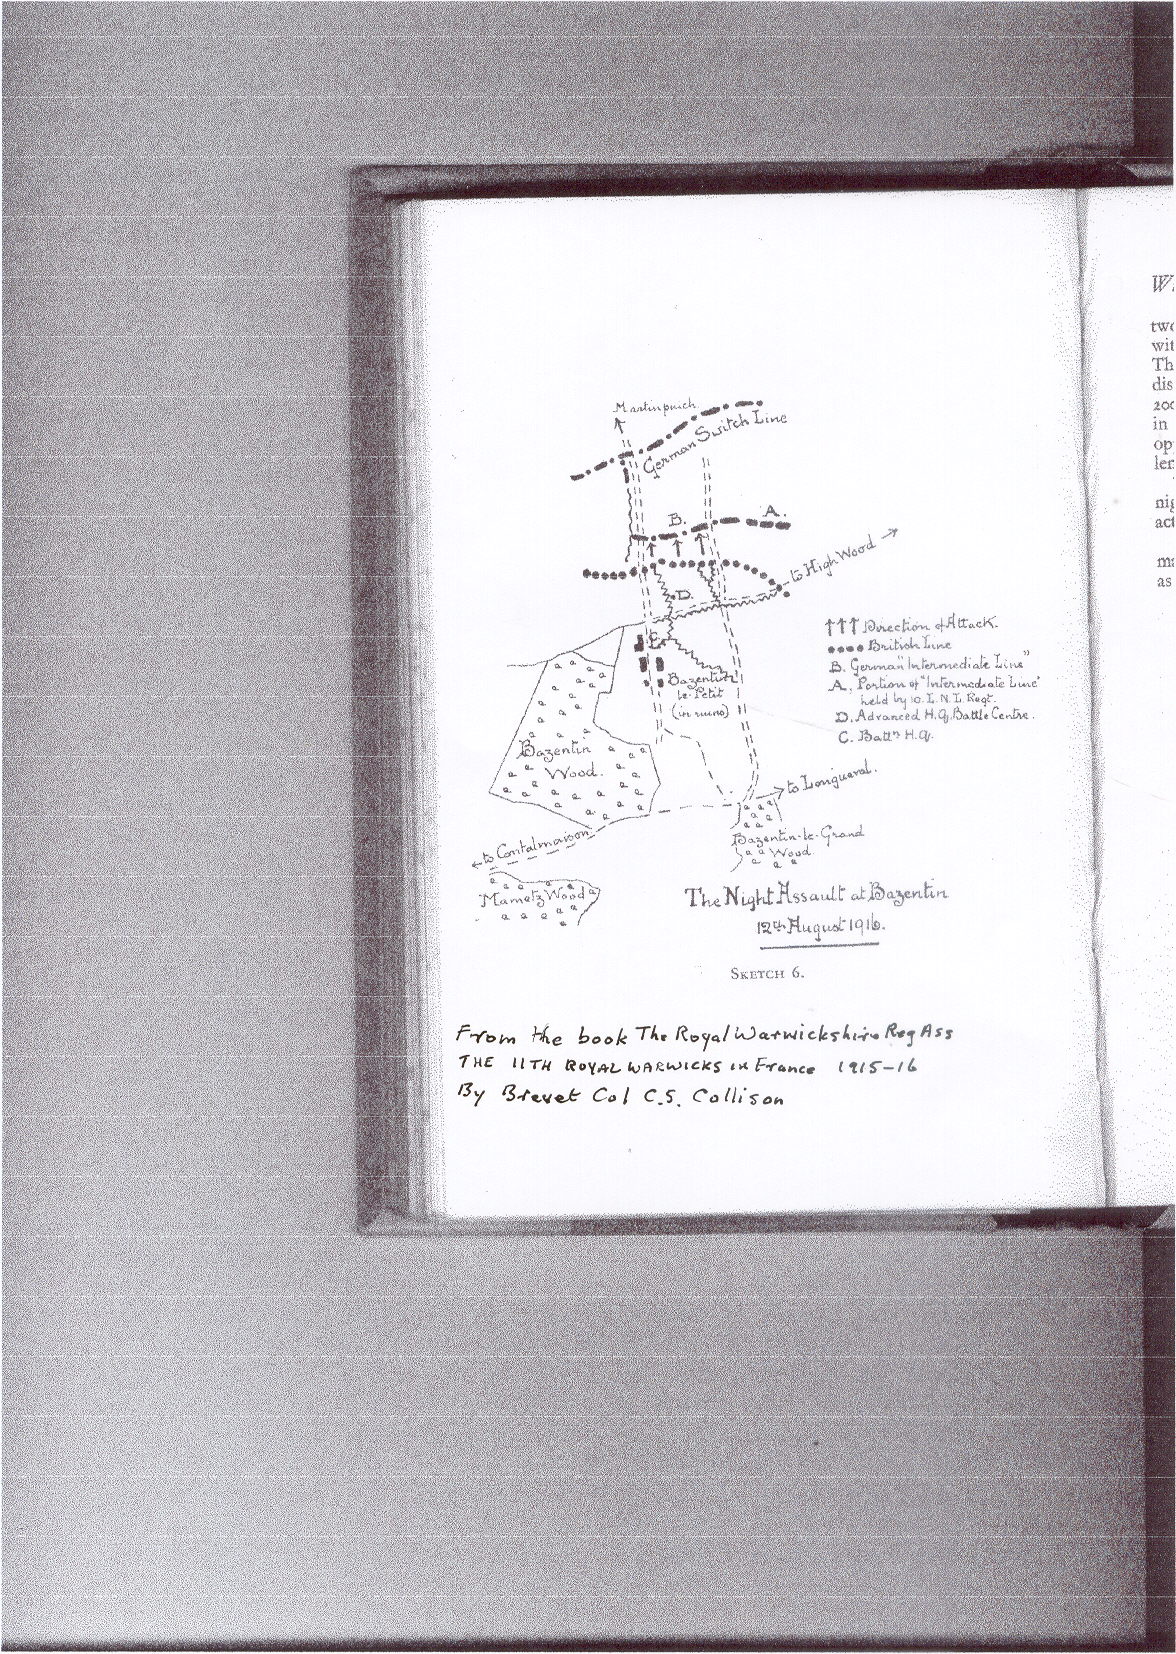 Martinpuich.
German Switch Line
B.
A.
→ to High Wood →
D.
C.
↑↑↑ Direction of Attack.
•••• British Line
B. German "Intermediate Line"
A. Portion of "Intermediate Line"
held by 10. L. N. L. Regt.
D. Advanced H.Q. Battle Centre.
C. Battn H.Q.
Bazentin
le-Petit
(in ruins)
Bazentin
Wood.
→ to Longueval.
Bazentin-le-Grand
Wood.
← to Contalmaison
Mametz Wood
The Night Assault at Bazentin
12th August 1916.
SKETCH 6.
From the book The Royal Warwickshire Reg Ass
THE 11TH ROYAL WARWICKS in France 1915-16
By Brevet Col C.S. Collison
two
wit
Th
dis
200
in
op
ler
nig
act
ma
as